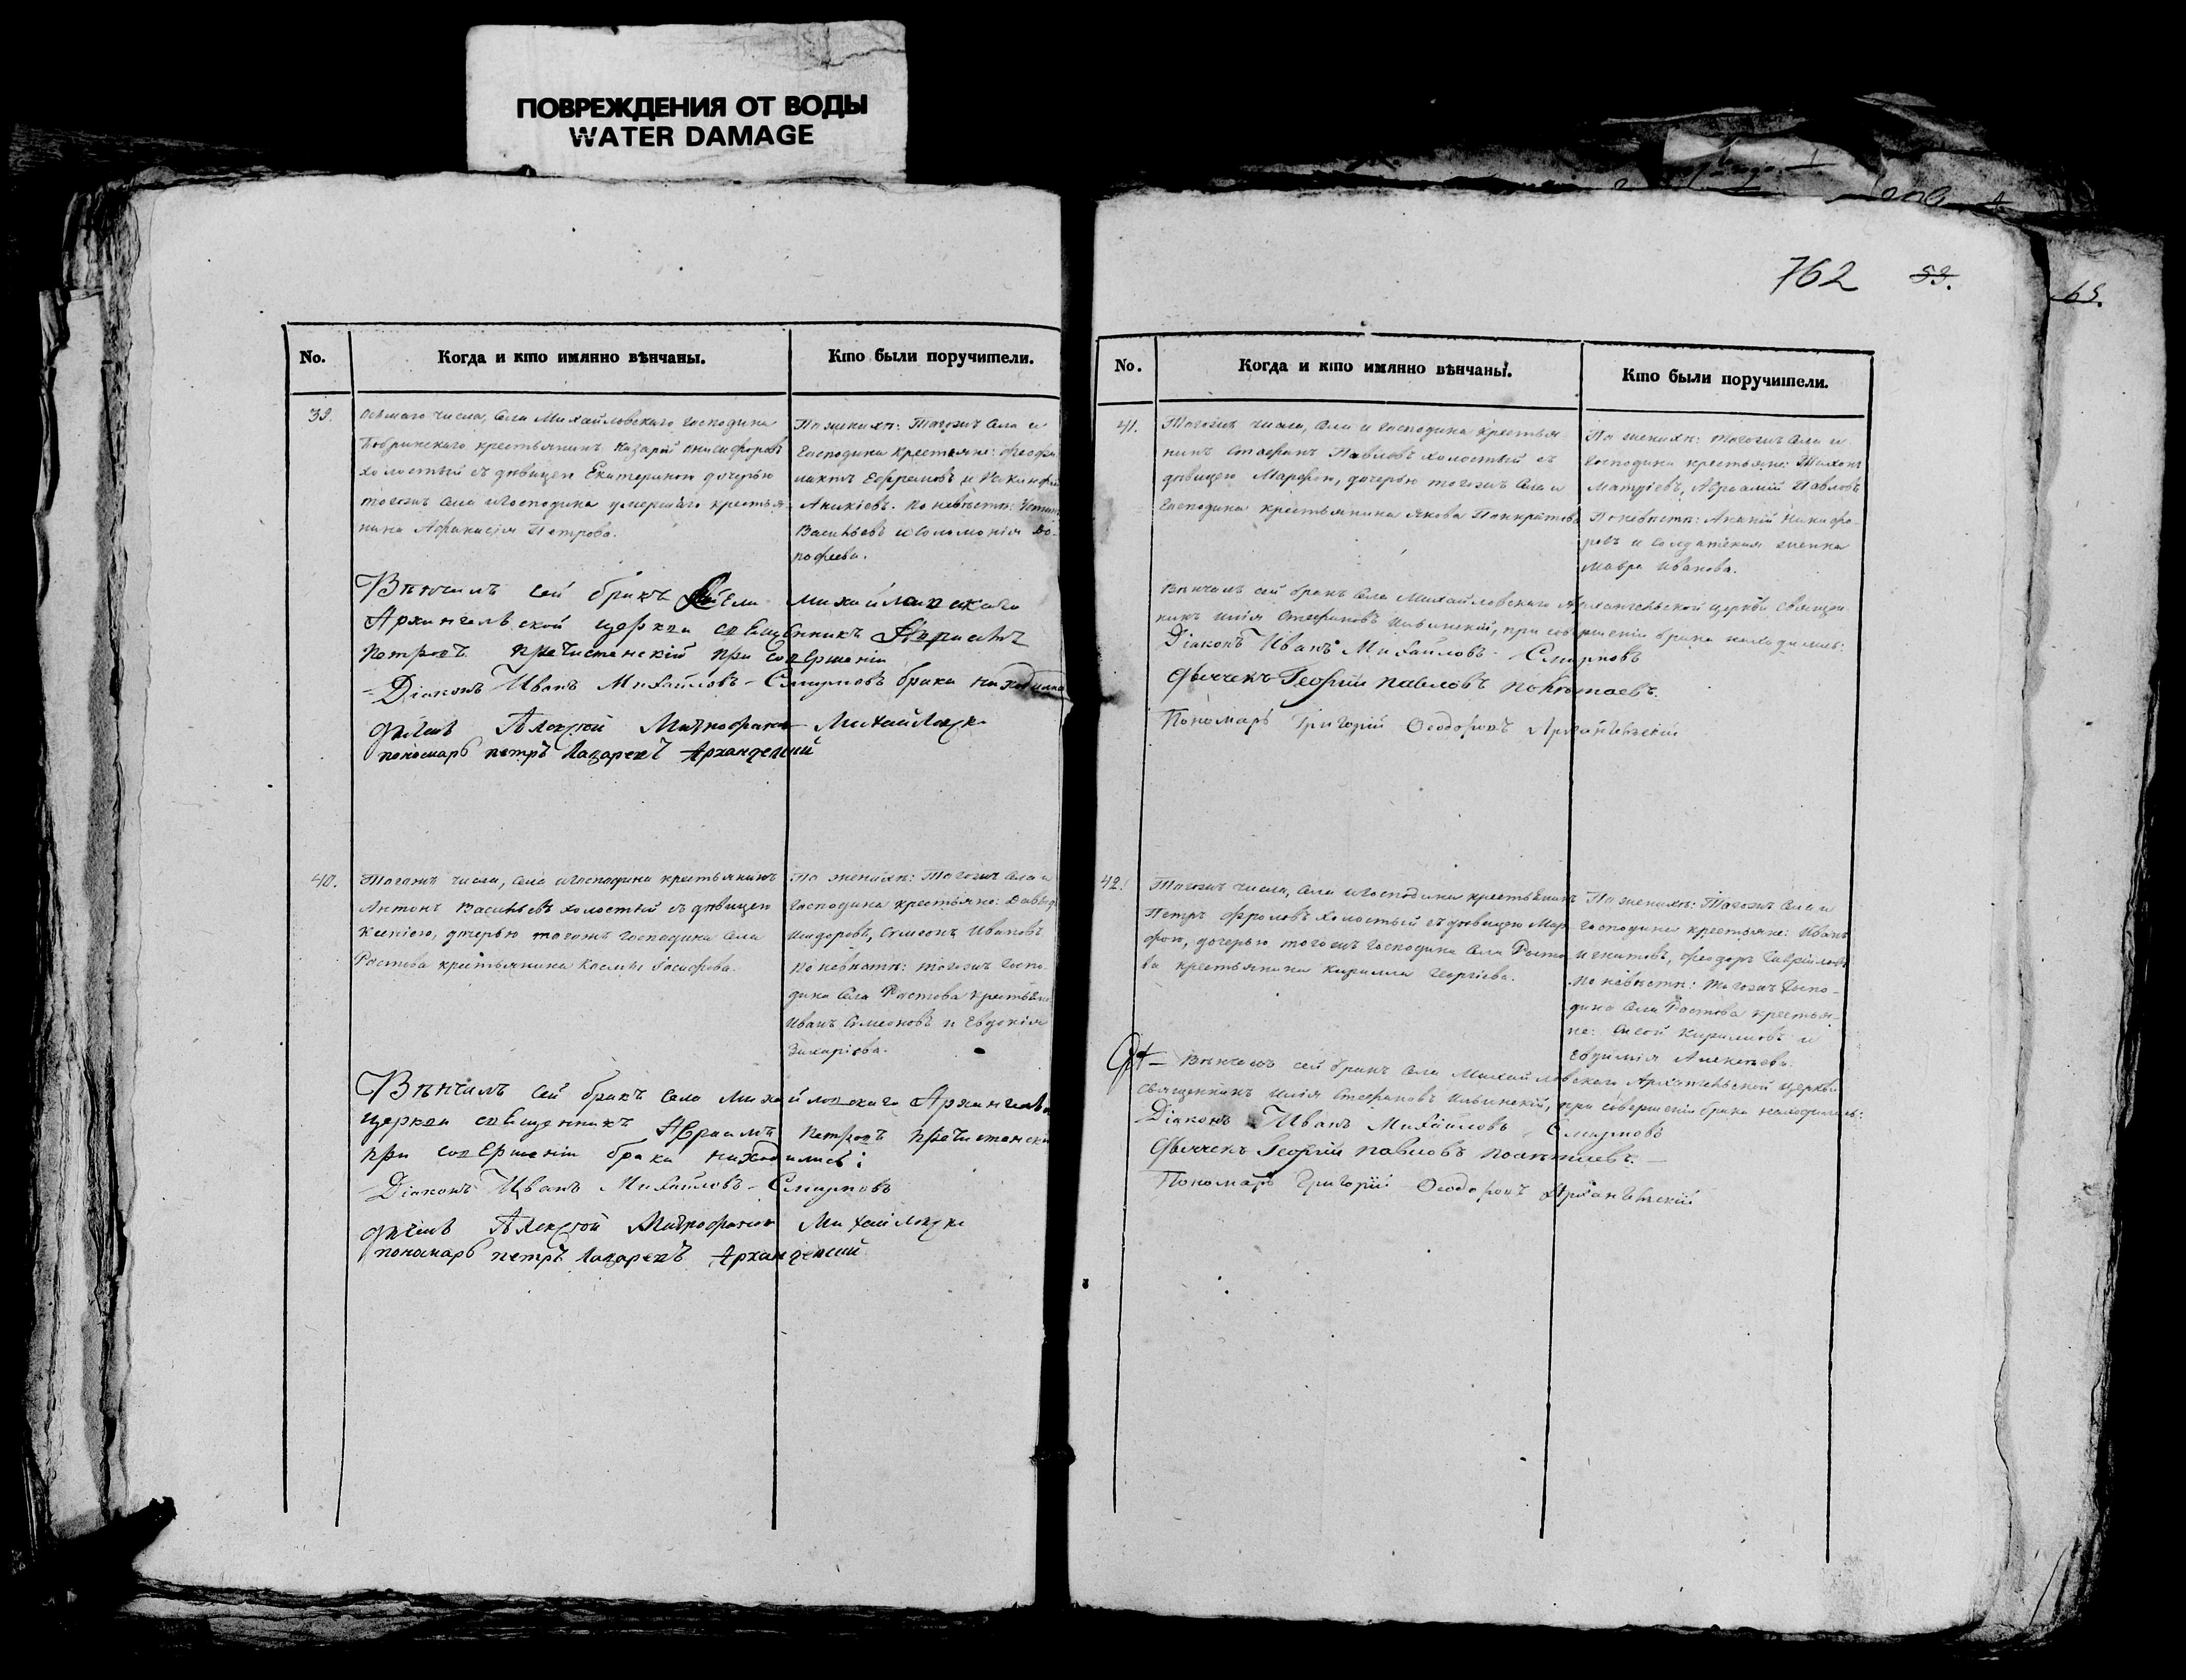 ПОВРЕЖДЕНИЯ ОТ ВОДЫ
WATER DAMAGE
762 53.
65.
No. Когда и кто имянно вѣнчаны. Кто были поручители.
39.
Осьмаго числа, села Михайловскаго господина
Бобринскаго крестьянинъ Назарій Онисифоровъ
холостый съ дѣвицею Екатериною дочерью
тогожъ села и господина умершаго крестья-
нина Афанасія Петрова.
По женихѣ: тогожъ села и
господина крестьяне: Феофи
лактъ Ефремовъ и
Аникіевъ. По невѣстѣ:
Васильевъ и Соломонія До-
рофеева.
Вѣнчалъ сей бракъ села Михайловскаго
Архангельской церкви священникъ Авраамъ
Петровъ Пречистенскій при совершеніи
Діаконъ Иванъ Михайловъ Смирновъ брака находились
Алексѣй Митрофановъ
пономарь Петръ Лазаревъ Архангельскій
40.
Тогожъ числа, села и господина крестьянинъ
Антонъ Васильевъ холостый съ дѣвицею
Ксеніею, дочерью тогожъ господина села
Ростова крестьянина Косьмы Іосифова.
По женихѣ: тогожъ села и
господина крестьяне: Давыдъ
Исидоровъ, Симеонъ Ивановъ
По невѣстѣ: тогожъ госпо-
дина села Ростова крестьяне
Иванъ Симеоновъ и Евдокія
Захаріева.
Вѣнчалъ сей бракъ села Михайловскаго Архангельской
церкви священникъ Авраамъ Петровъ Пречистенскій
при совершеніи брака находились:
Діаконъ Иванъ Михайловъ Смирновъ
Алексѣй Митрофановъ
пономарь Петръ Лазаревъ Архангельскій
No. Когда и кто имянно вѣнчаны. Кто были поручители.
41.
Тогожъ числа, села и господина крестья
нинъ Стефанъ Павловъ холостый съ
дѣвицею Марфою, дочерью тогожъ села и
господина крестьянина Якова Панкратова
По женихѣ: тогожъ села и
господина крестьяне: Тихонъ
Матфіевъ, Авраамій Павловъ
По невѣстѣ: Ананій Никифо-
ровъ и солдатская женка
Мавра Иванова.
Вѣнчалъ сей бракъ села Михайловскаго Архангельской церкви священ
никъ Илія Стефановъ Ильинскій, при совершеніи брака находились:
Діаконъ Иванъ Михайловъ Смирновъ
Дьячекъ Георгій Павловъ
Пономарь Григорій Феодоровъ Архангельскій
42.
Тогожъ числа, села и господина крестьянинъ
Петръ Фроловъ холостый съ дѣвицею Мар
фою, дочерью тогожъ господина села Росто
ва крестьянина Кирилла Георгіева.
По женихѣ: тогожъ села и
господина крестьяне: Иванъ
Игнатовъ, Феодоръ Гавріиловъ
по невѣстѣ: тогожъ госпо-
дина села Ростова крестья-
не: Сысой Кириловъ и
Евфимія Алексѣева.
Вѣнчалъ сей бракъ села Михайловскаго Архангельской церкви
священникъ Илія Стефановъ Ильинскій, при совершеніи брака находились:
Діаконъ Иванъ Михайловъ Смирновъ
Дьячекъ Георгій Павловъ
Пономарь Григорій Феодоровъ Архангельскій